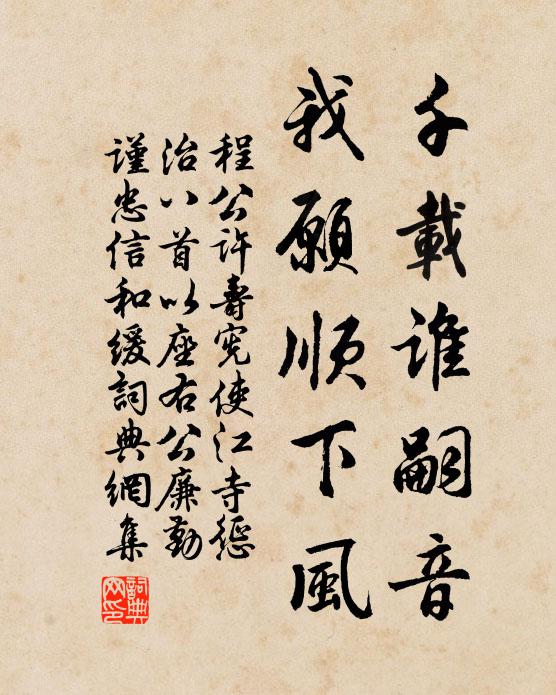 千載誰嗣音
我願順下風
程公許壽宪使江寺惩
治八首以座右公廉勤
謹忠信和緩詞典網集
詞典
网印